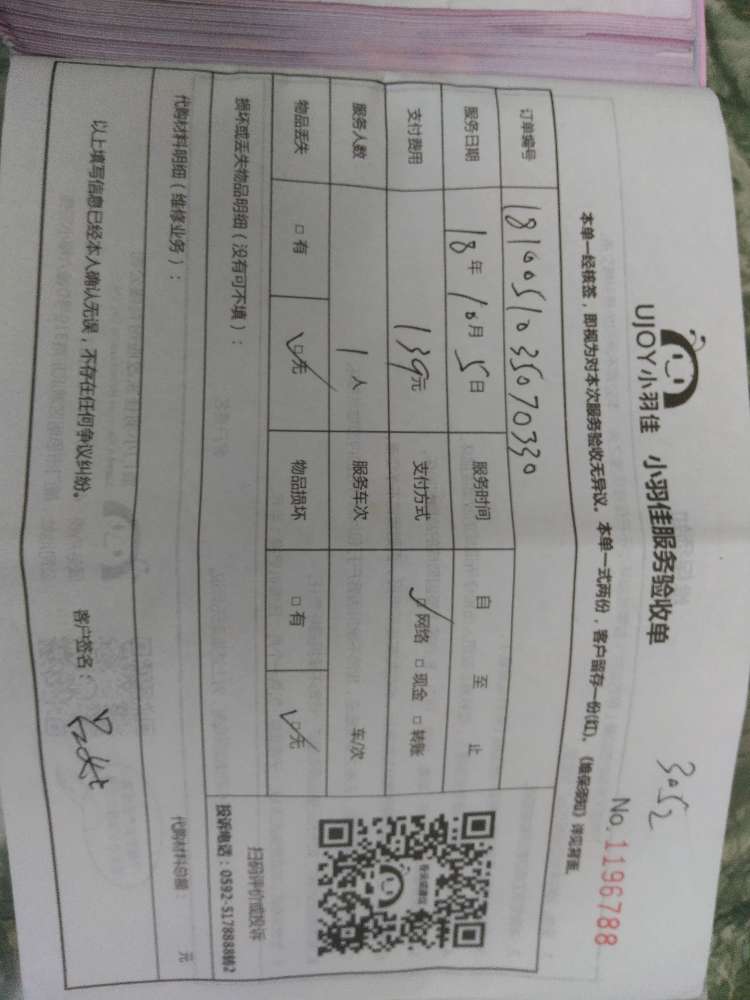 3052
UJOY小羽佳 小羽佳服务验收单
No.1196788
本单一经核签，即视为对本次服务验收无异议。本单一式两份，客户留存一份(红)。《维保须知》详见背面。
订单编号 1810051035070330
服务日期 18年10月5日 服务时间 自 至 止
支付费用 139元 支付方式 ☑网络 □现金 □转账
服务人数 1人 服务车次 车/次
物品丢失 □有 ☑无 物品损坏 □有 ☑无
扫码评价或投诉
投诉电话：0592-5178888转2
损坏或丢失物品明细（没有可不填）：
代购材料明细（维修业务）： 代购材料总额： 元
以上填写信息已经本人确认无误，不存在任何争议纠纷。 客户签名：